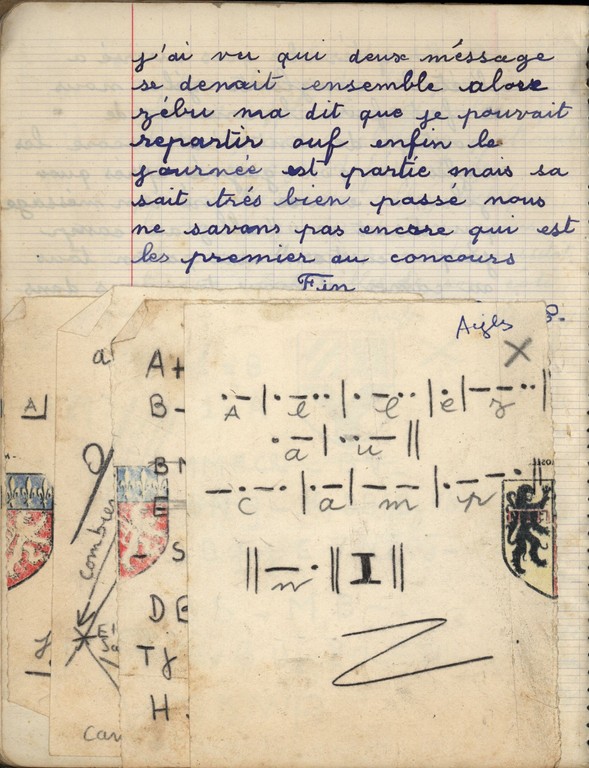 j'ai vu qui deux méssage
se denait ensemble alors
zébu ma dit que je pouvait
repartir ouf enfin le
journée est partie mais sa
sait trés bien passé nous
ne savons pas encore qui est
les premier au concours
Fin
Aigles
X
.— | .—.. | .—.. | . | ——.. ||
A l l e z
.— | ..— ||
a u
—.—. | .— | —— | .——. ||
c a m p
|| —. || I ||
n
A
a
combien
A +
B -
B N
E
- S
D E
T y
H .